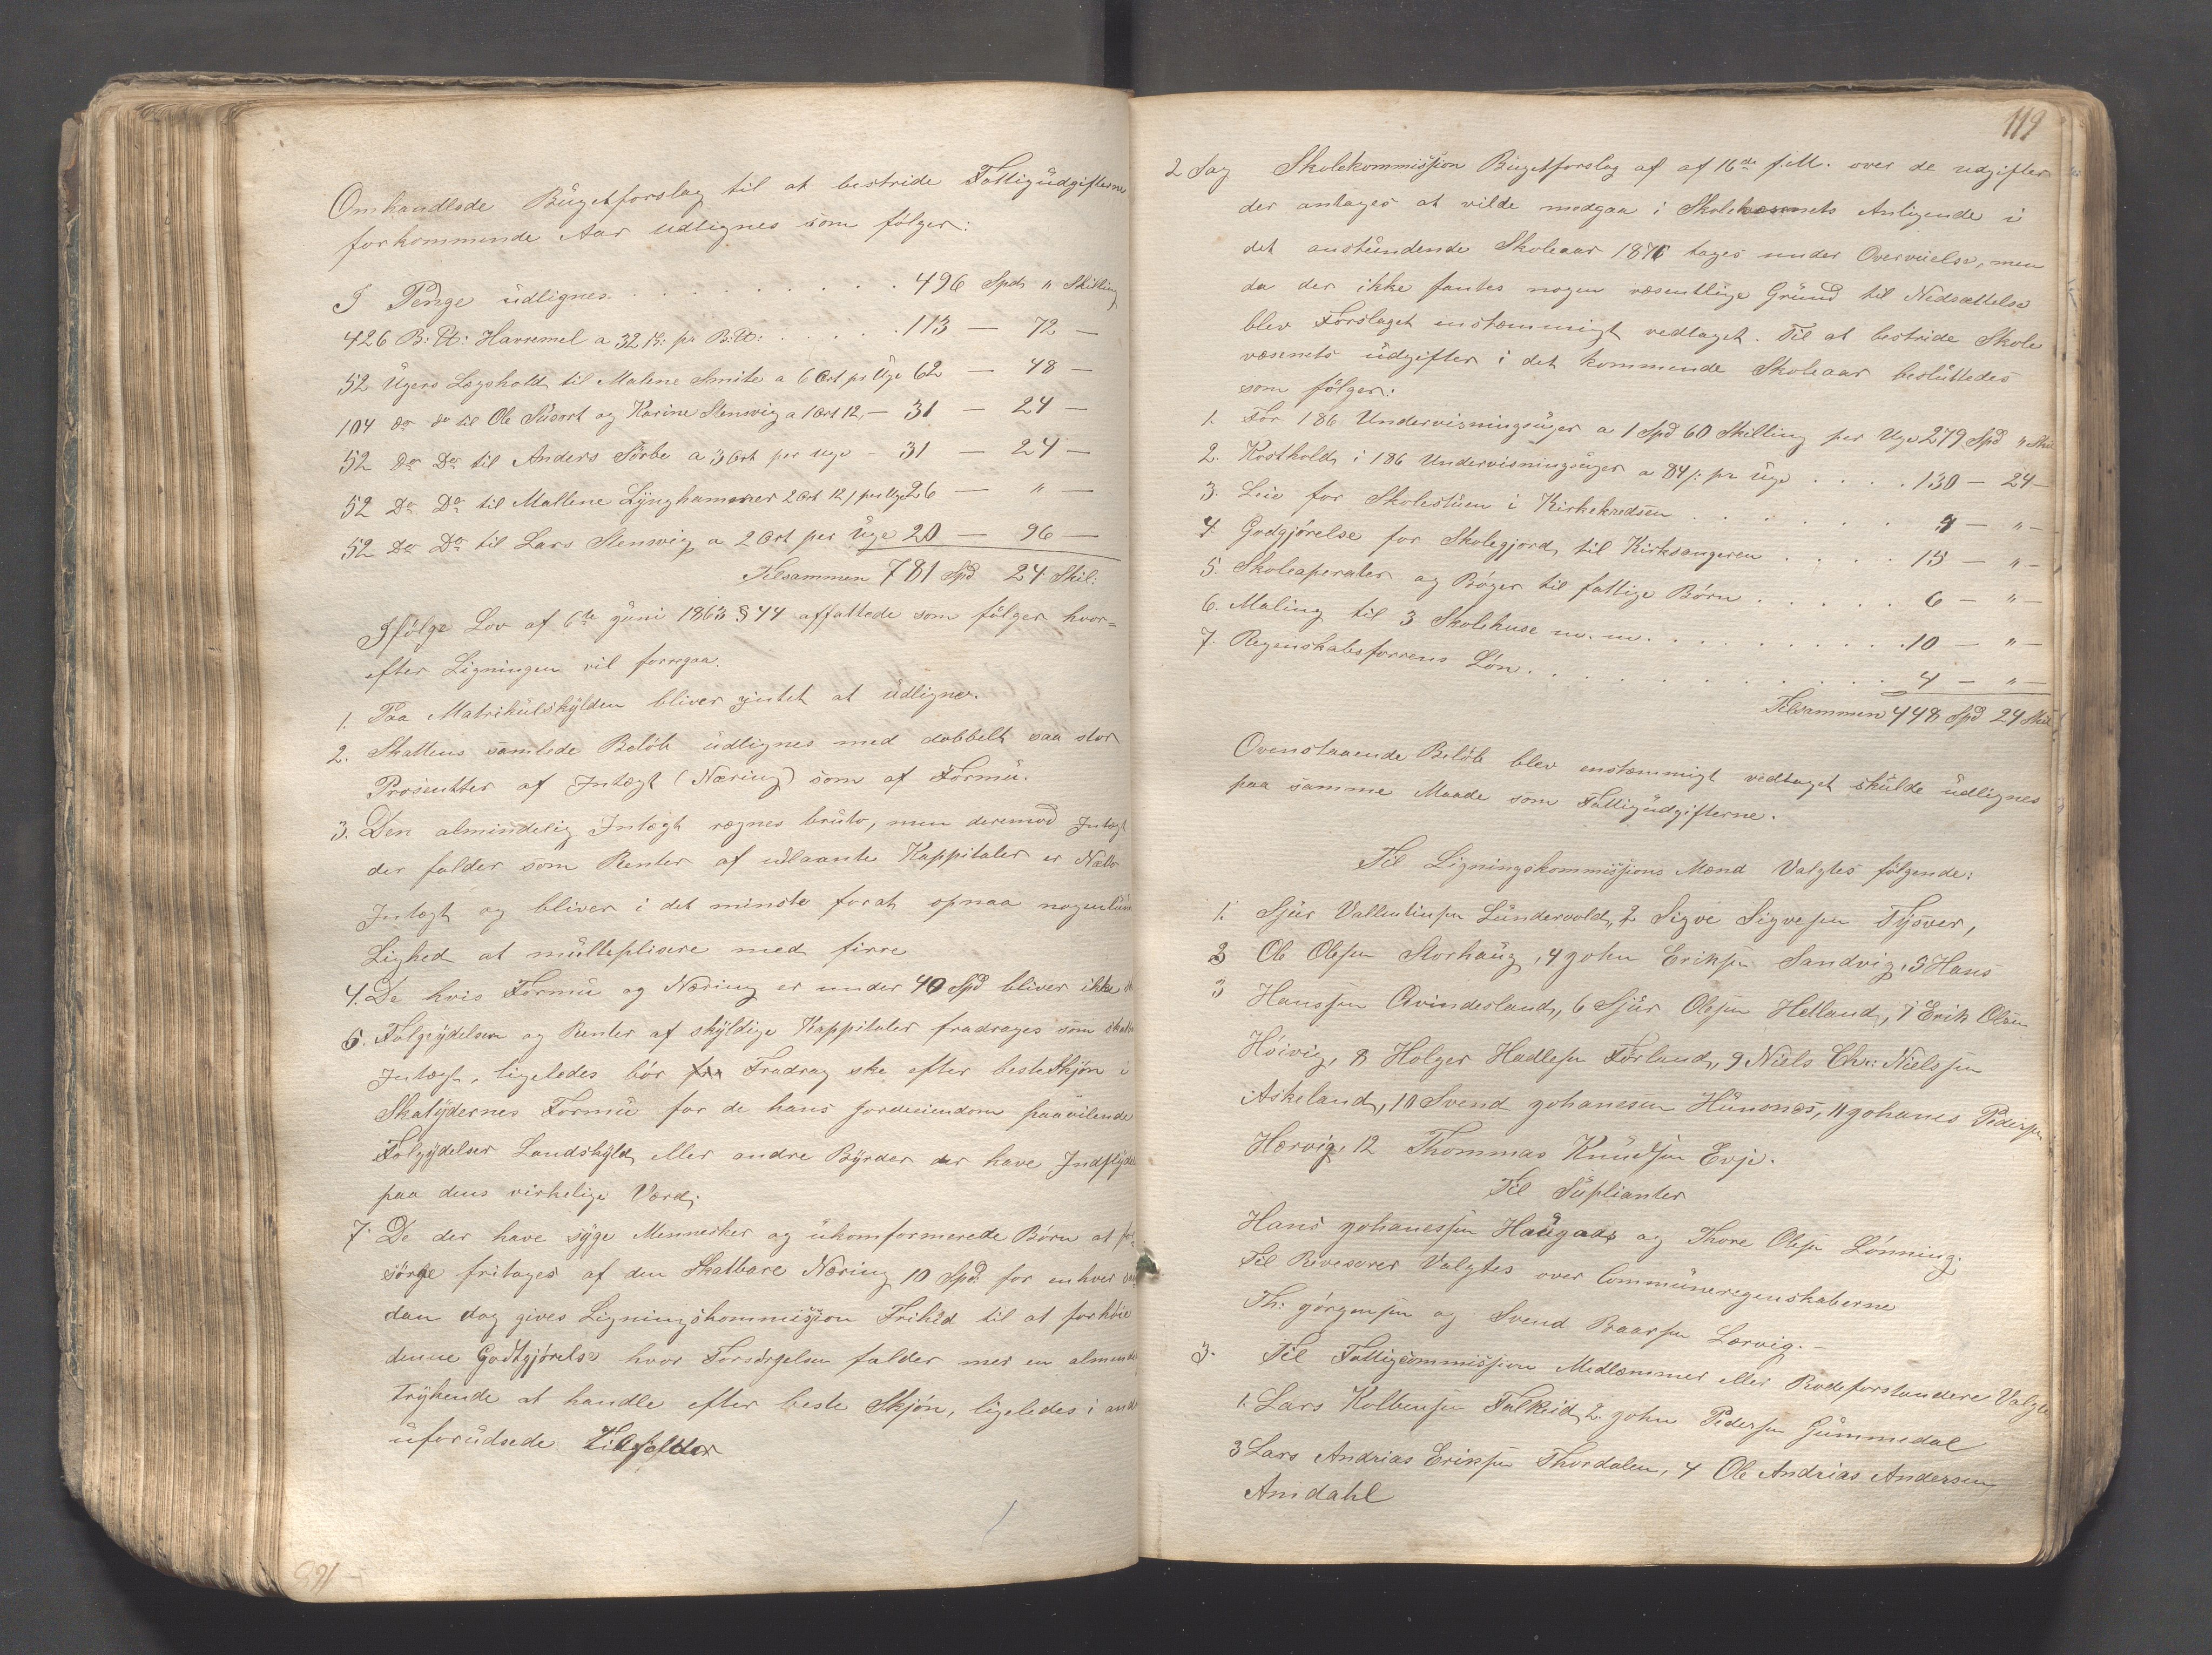 Omhandlede Bügetforslag til at bestride Fattigüdgifterne
forkommende Aar üdlignes som følger:
I Penge üdlignes. . . . . . . . . . 496 Spd " Skilling
426 B: ℔: Havremel a 32 ß: pr B:℔: . . . . 113 — 72 —
52 Ügers Lægshold til Malene Smite a 6 Ort pr Üge 62 — 48 —
104 do do til Ole Süsort og Karine Stensvig a 1 Ort 12, — 31 — 24 —
52 Do Do til Anders Førbe a 3 Ort per uge — 31 — 24 —
52 Do Do til Mallene Lÿnghammer 2 Ort 12 / per Uge 26 — " —
52 Do Do til Lars Stensvig a 2 Ort per Üge 20 — 96 —
Tilsammen 781 Spd 24 Skil:
Ifølge Lov af 6te Jüni 1863 § 44 affattede som følger hvor=
efter Ligningen vil forregaa.
1. Paa Matrikülskÿlden bliver intet at üdligne.
2. Skattens samlede Beløb üdlignes med dobbelt saa stor
Prosentter af Intægt (Næring) som af Formü.
3. Den almindelig Intægt regnes brüto, men deremod Intægt
der falder som Renter af udlaante Kappitaler er Netto
Intægt og bliver i det minste forat opnaa nogenlün
Lighed at mülteplisere med firre
4. De hvis Formü og Næring er under 40 Spd bliver ikke
6. Folgeÿdelsen og Renter af skÿldige Kappitaler fradrages som
Intægt, ligeledes bör Fradrag ske efter beste Skjön i
Skatÿdernes Formü for de hans Jordeiendom paavilende
Folgÿdelser Landskÿld eller andre Bÿrder der have Indflÿdels
paa dens virkelige Værd;
7. De der have sÿge Mennesker og ükomformerede Børn at for-
sörge fritages af den Skatbare Næring 10 Spd for enhver saa
dan dog gives Ligningskommission Frihed til at forhöie
denne Godtgjörelse hvor Forsörgelsen falder mer en almindel
Trÿkende at handle efter beste Skjön, ligeledes i and
üforüdsede Tilfælder
119
2 Sag Skolekommission Bügetforslag af af 16de f.M. over de udgifter
der antages at vilde medgaa i Skolevæsenets Anligende i
det anstündende Skoleaar 1876 tages under Overveielse, men
da der ikke fantes nogen væsentlige Gründ til Nedsættelse
blev Forslaget enstæmmigt vedtaget. Til at bestride Skole
væsenets üdgifter i det kommende Skoleaar beslüttedes
som følger:
1. For 186 Undervisningsüger a 1 Spd 60 Skilling per Uge 279 Spd " Skil
2. Kostholds i 186 Undervisningsüger a 84 /: pr üge . . . . 130 — 24 —
3. Leie for Skolestüen i Kirkekredsen . . . . . . 4 — " —
4. Godgjørelse for Skolegjord til Kirksangeren . . . . 15 — " —
5. Skoleaperater og Bøger til fattige Børn . . . . . 6 — " —
6. Maling til 3 Skolehuse m. m. . . . . . . . . 10 — " —
7. Regenskabsførrens Løn . . . . . . . . . . . 4 — " —
Tilsammen 448 Spd 24 Skil
Ovenstaaende Beløb blev enstæmmigt vedtaget skülde üdlignes
paa samme Maade som Fattigüdgifterne.
Til Ligningskommissions Mænd Valgtes følgende:
1. Sjür Vallentinsen Lündervold, 2 Sigve Sigvesen Tÿsver,
3 Ole Olesen Storhaüg, 4 John Eriksen Sandvig, 5 Hans
Hanssen Qvindesland, 6 Sjür Olesen Hetland, 7 Erik Olsen
Høivig, 8 Holger Hadlesen Førland, 9 Niels Chr: Nielssen
Askeland, 10 Svend Johanesen Hünsnæs, 11 Johanes Pedersen
Hervig, 12 Thommas Knüdsen Evje.
Til Süplianter
Hans Johanessen Haügaas og Thore Olesen Lønning;
Til Rivesorer Valgtes over Commüneregenskaberne
Th: Jörgensen og Svend Baarsen Lærvig. —
3. Til Fattigcommission Medlemmer eller Rodeforstandere Valgtes
1. Lars Kolbensen Falkeid, 2. John Pedersen Gümmedal
3 Lars Andrias Eriksen Thordalen, 4 Ole Andrias Andersen
Amdahl